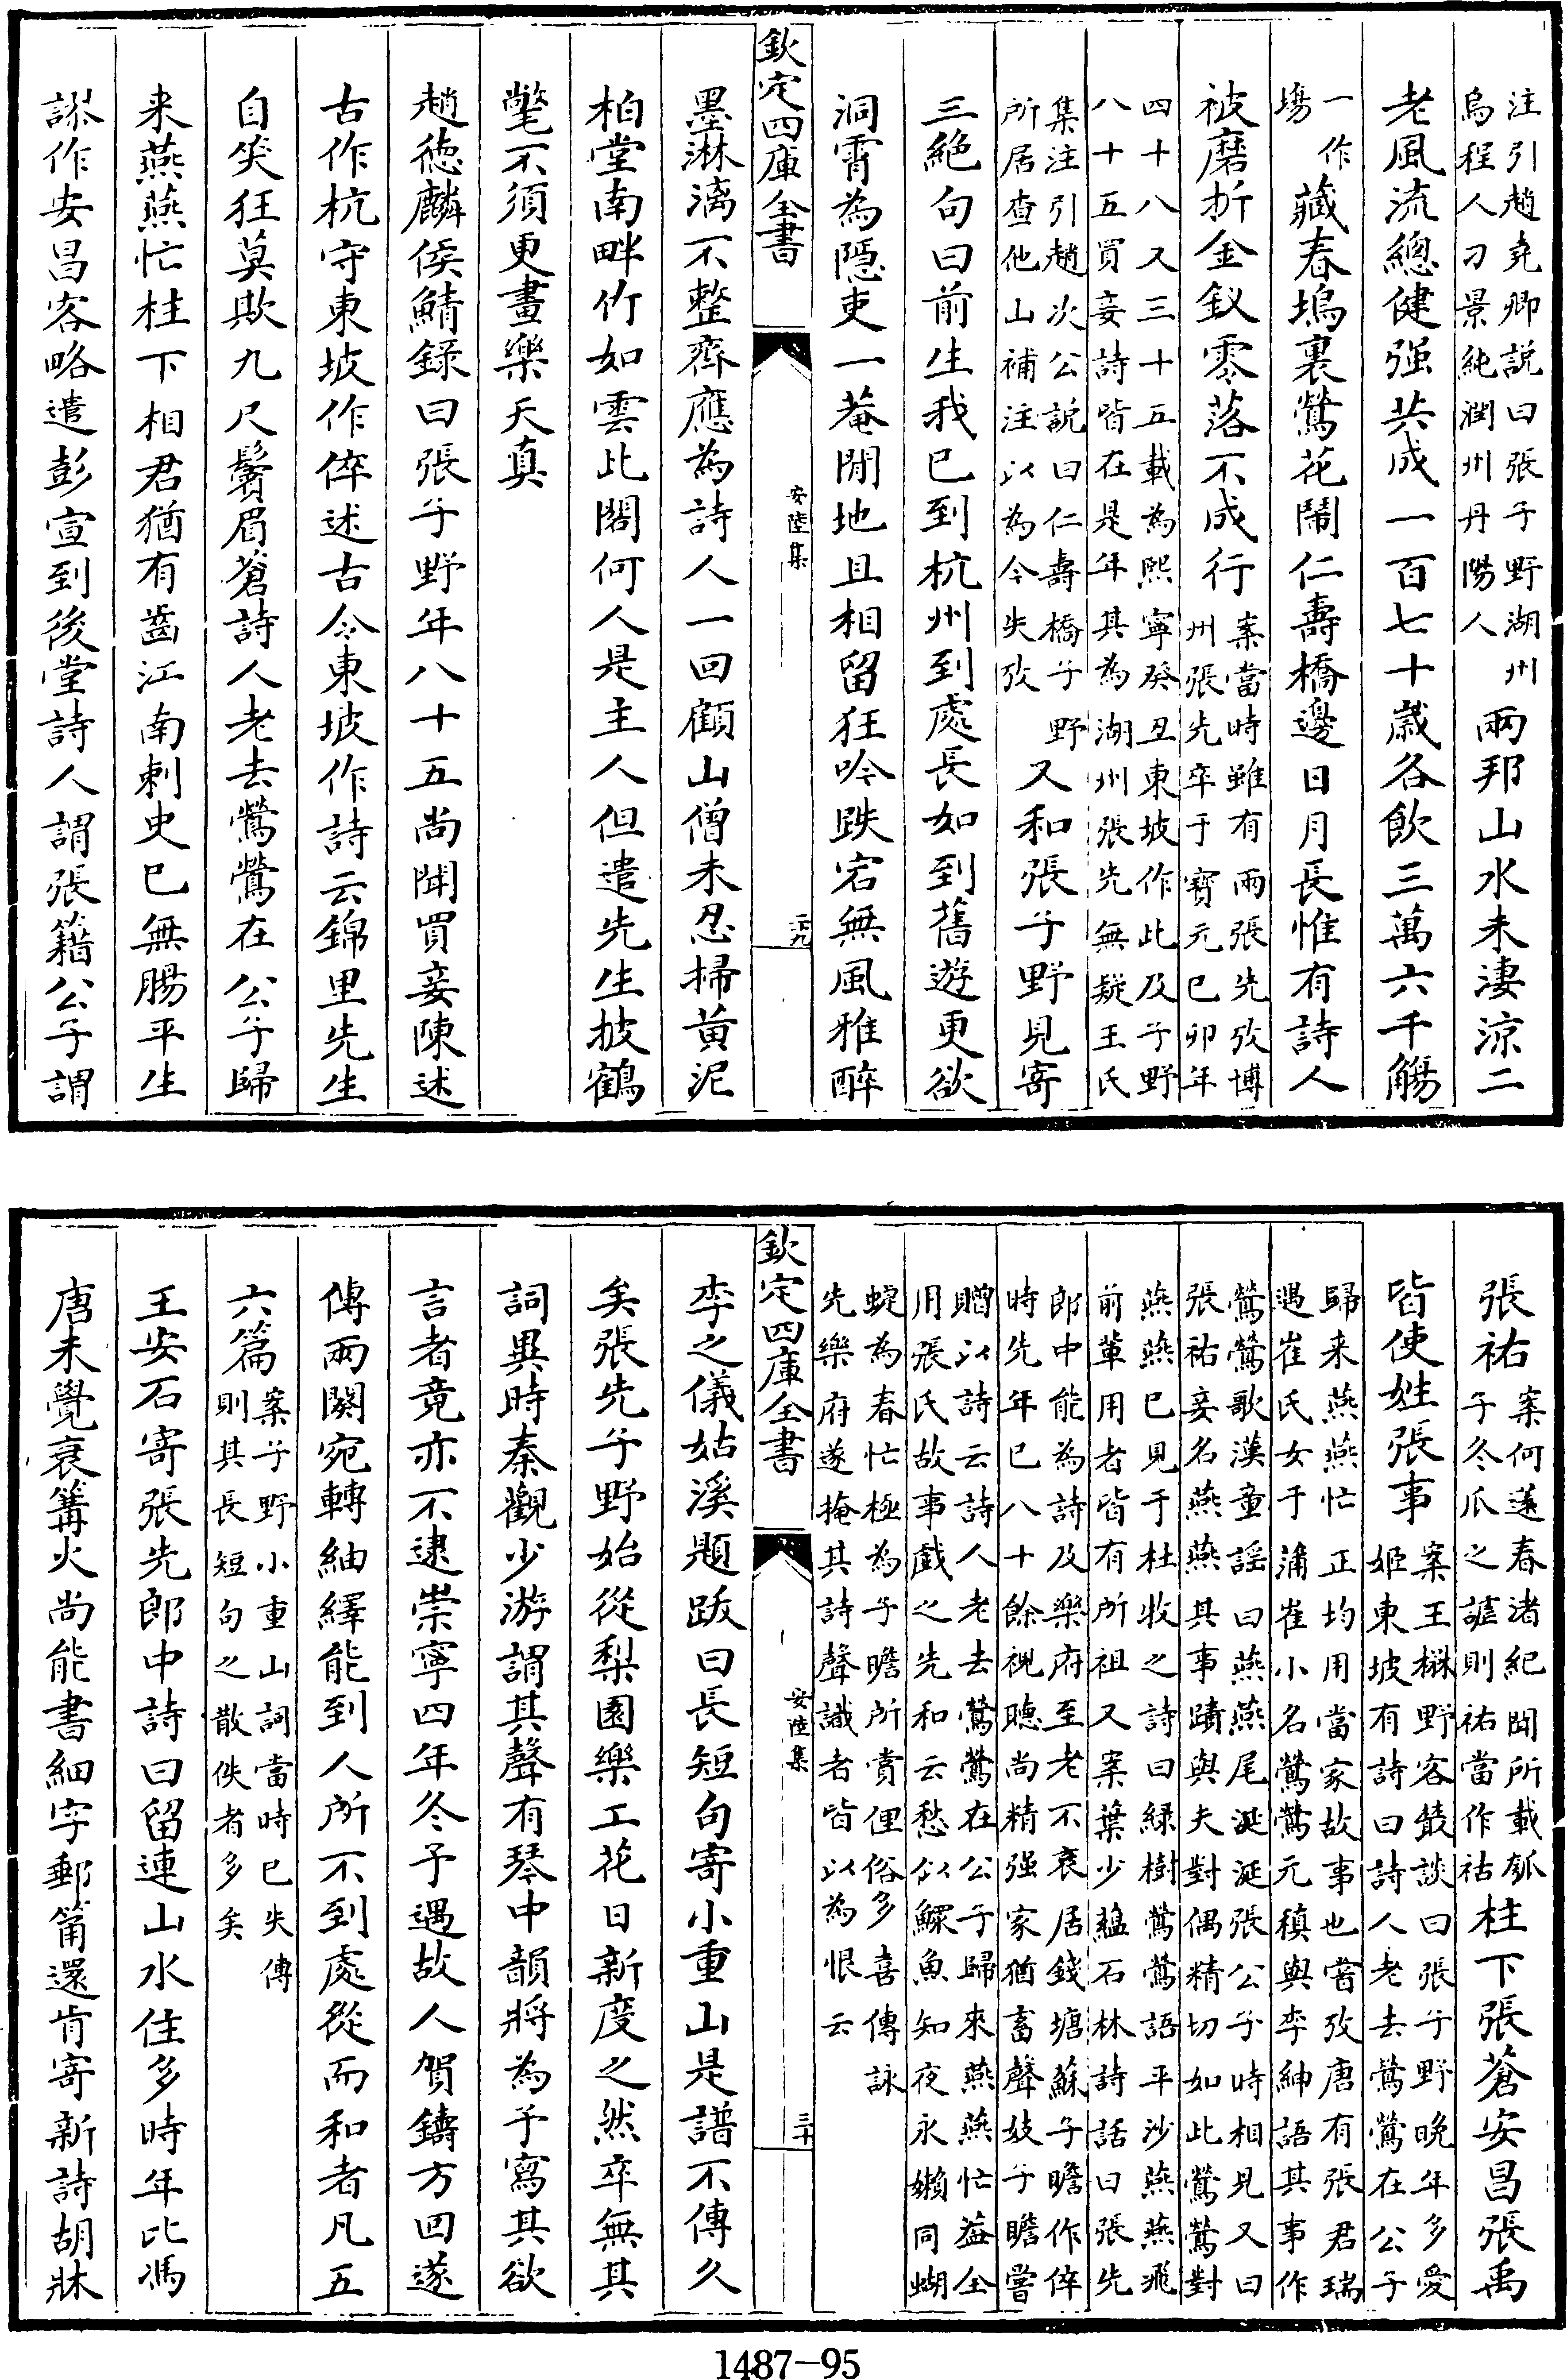 注引趙堯卿說曰張子野湖州烏程人刁景純潤州丹陽人兩邦山水未淒涼二
老風流總健强共成一百七十歲各飲三萬六千觴
一作塲藏春塢裏鶯花鬧仁壽橋邊日月長惟有詩人
被磨折金釵零落不成行案當時雖有兩張先攷博州張先卒于寳元已卯年
四十八又三十五載為熙寧癸丑東坡作此及子野八十五買妾詩皆在是年其為湖州張先無疑王氏
集注引趙次公說曰仁壽橋子野所居查他山補注以為今失攷又和張子野見寄
三絶句曰前生我已到杭州到處長如到舊遊更欲
洞霄為隱吏一菴閒地且相留狂吟跌宕無風雅醉
欽定四庫全書 安陸集 二十九
墨淋漓不整齊應為詩人一回顧山僧未忍掃黄泥
柏堂南畔竹如雲此閣何人是主人但遣先生披鶴
氅不須更畫樂天真
趙徳麟侯鯖錄曰張子野年八十五尚聞買妾陳述
古作杭守東坡作倅述古令東坡作詩云錦里先生
自笑狂莫欺九尺鬢眉蒼詩人老去鶯鶯在公子歸
来燕燕忙柱下相君猶有齒江南刺史已無腸平生
謬作安昌客略遣彭宣到後堂詩人謂張籍公子謂
張祐案何薳春渚紀聞所載瓠子冬瓜之謔則祐當作祜柱下張蒼安昌張禹
皆使姓張事案王楙野客叢談曰張子野晩年多愛姬東坡有詩曰詩人老去鶯鶯在公子
歸来燕燕忙正均用當家故事也嘗攷唐有張君瑞遇崔氏女于蒲崔小名鶯鶯元稹與李紳語其事作
鶯鶯歌漢童謡曰燕燕尾涎涎張公子時相見又曰張祐妾名燕燕其事蹟與夫對偶精切如此鶯鶯對
燕燕已見于杜牧之詩曰緑樹鶯鶯語平沙燕燕飛前輩用者皆有所祖又案葉少藴石林詩話曰張先
郎中能為詩及樂府至老不衰居錢塘蘇子瞻作倅時先年已八十餘視聴尚精强家猶畜聲妓子瞻嘗
贈以詩云詩人老去鶯鶯在公子歸來燕燕忙葢全用張氏故事戲之先和云愁似鰥魚知夜永嬾同蝴
蜨為春忙極為子瞻所賞俚俗多喜傳詠先樂府遂掩其詩聲識者皆以為恨云
欽定四庫全書 安陸集 三十
李之儀姑溪題跋曰長短句寄小重山是譜不傳久
矣張先子野始從梨園樂工花日新度之然卒無其
詞異時秦觀少游謂其聲有琴中韻將為予寫其欲
言者竟亦不逮崇寧四年冬予遇故人賀鑄方回遂
傳兩闋宛轉紬繹能到人所不到處從而和者凡五
六篇案子野小重山詞當時已失傳則其長短句之散佚者多矣
王安石寄張先郎中詩曰留連山水住多時年比馮
唐未覺衰篝火尚能書細字郵筩還肯寄新詩胡牀
1487-95